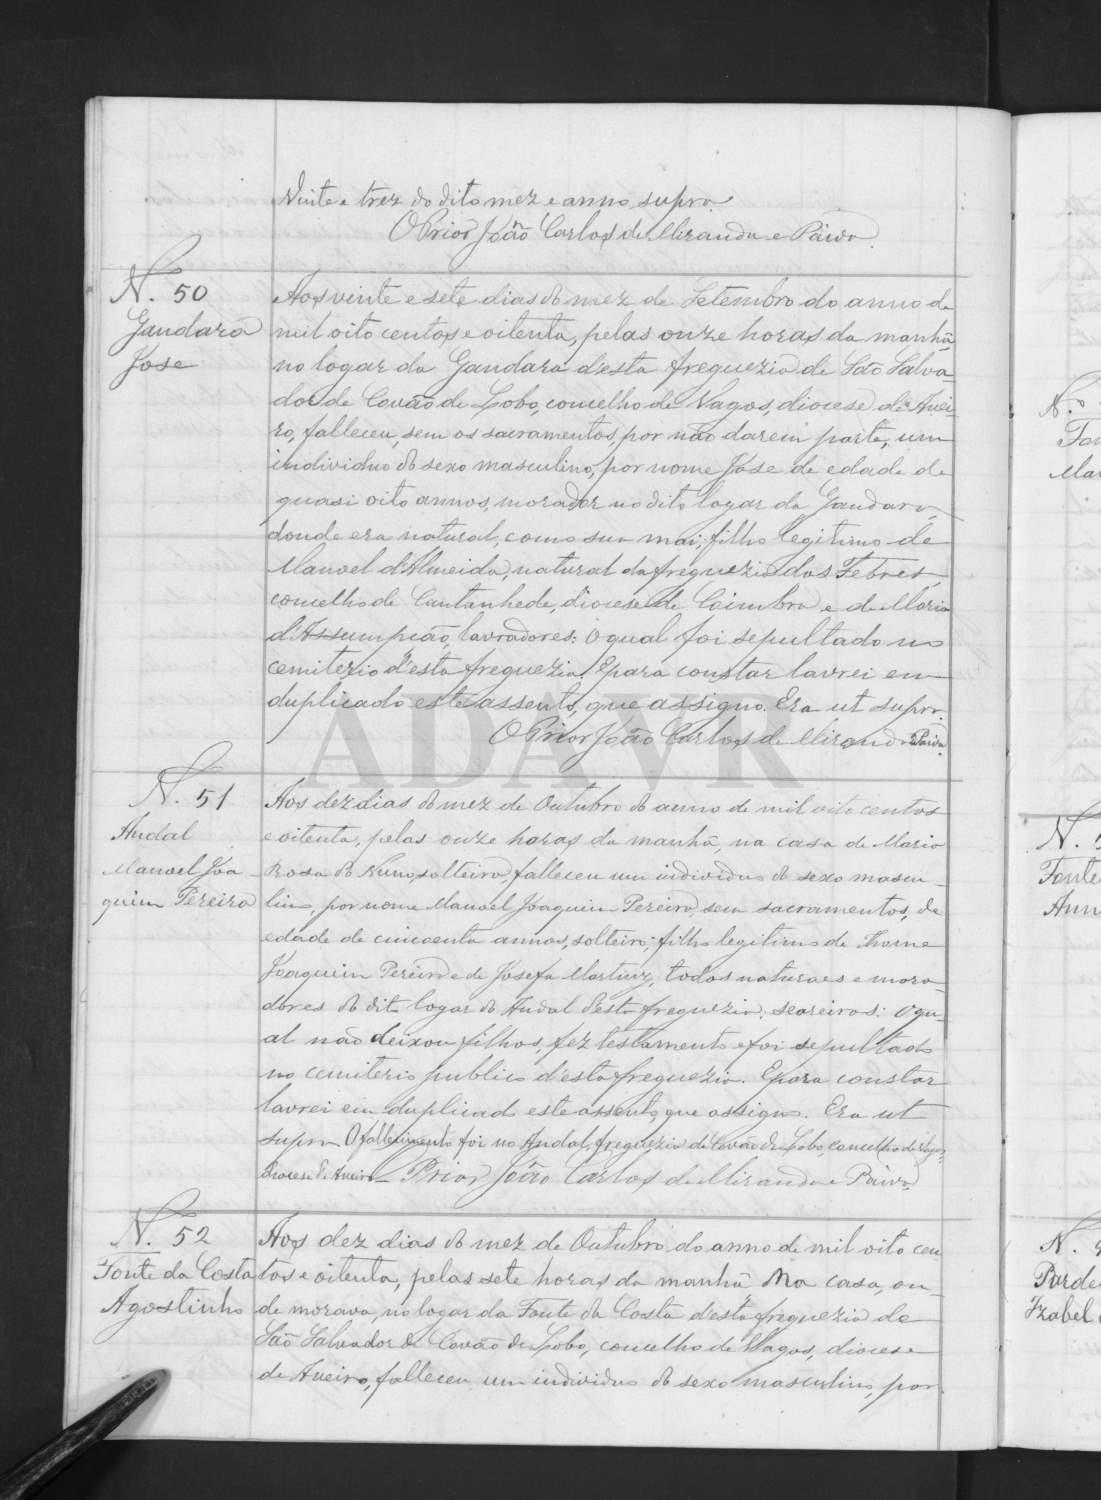 Vinte e trez do dito mez e anno supra.
O Prior João Carlos de Miranda e Paiva.
N. 50
Gandara
Jose
Aos vinte e sete dias do mez de Setembro do anno de
mil oito centos e oitenta, pelas onze horas da manhã
no logar da Gandara d'esta freguezia de São Salva-
dor de Covão de Lobo, concelho de Vagos, diocese de Avei-
ro, falleceu, sem os sacramentos, por não darem parte, um
individuo do sexo masculino, por nome Jose de edade de
quasi oito annos, morador no dito logar da Gandara,
donde era natural, como sua mai; filho legitimo de
Manoel d'Almeida, natural da freguezia das Febres,
concelho de Cantanhede, diocese de Coimbra e de Maria
d'Assumpção, lavradores: o qual foi sepultado no
cemiterio d'esta freguezia. E para constar lavrei em
duplicado este assento, que assigno. Era ut supra.
O Prior João Carlos de Miranda e Paiva.
ADAVR
N. 51
Andal
Manoel Joa-
quim Pereira
Aos dez dias do mez de Outubro do anno de mil oito centos
e oitenta, pelas onze horas da manhã, na casa de Maria
Rosa do Nuno, solteira, falleceu um individuo do sexo mascu-
lino, por nome Manoel Joaquim Pereira, sem sacramentos, de
edade de cincoenta annos, solteiro; filho legitimo de Thome
Joaquim Pereira e de Josefa Martins, todos naturaes e mora-
dores do dito logar do Andal d'esta freguezia, seareiros: o qu-
al não deixou filhos, fez testamento e foi sepultado
no cemiterio publico d'esta freguezia. E para constar
lavrei em duplicado este assento, que assigno. Era ut
supra. O fallecimento foi no Andal, freguezia de Covão de Lobo, concelho de Vagos,
diocese de Aveiro — Prior João Carlos de Miranda e Paiva
N. 52
Fonte da Costa
Agostinho
Aos dez dias do mez de Outubro do anno de mil oito cen-
tos e oitenta, pelas sete horas da manhã na casa, on-
de morava, no logar da Fonte da Costa d'esta freguezia de
São Salvador de Covão de Lobo, concelho de Vagos, diocese
de Aveiro, falleceu um individuo do sexo masculino, por